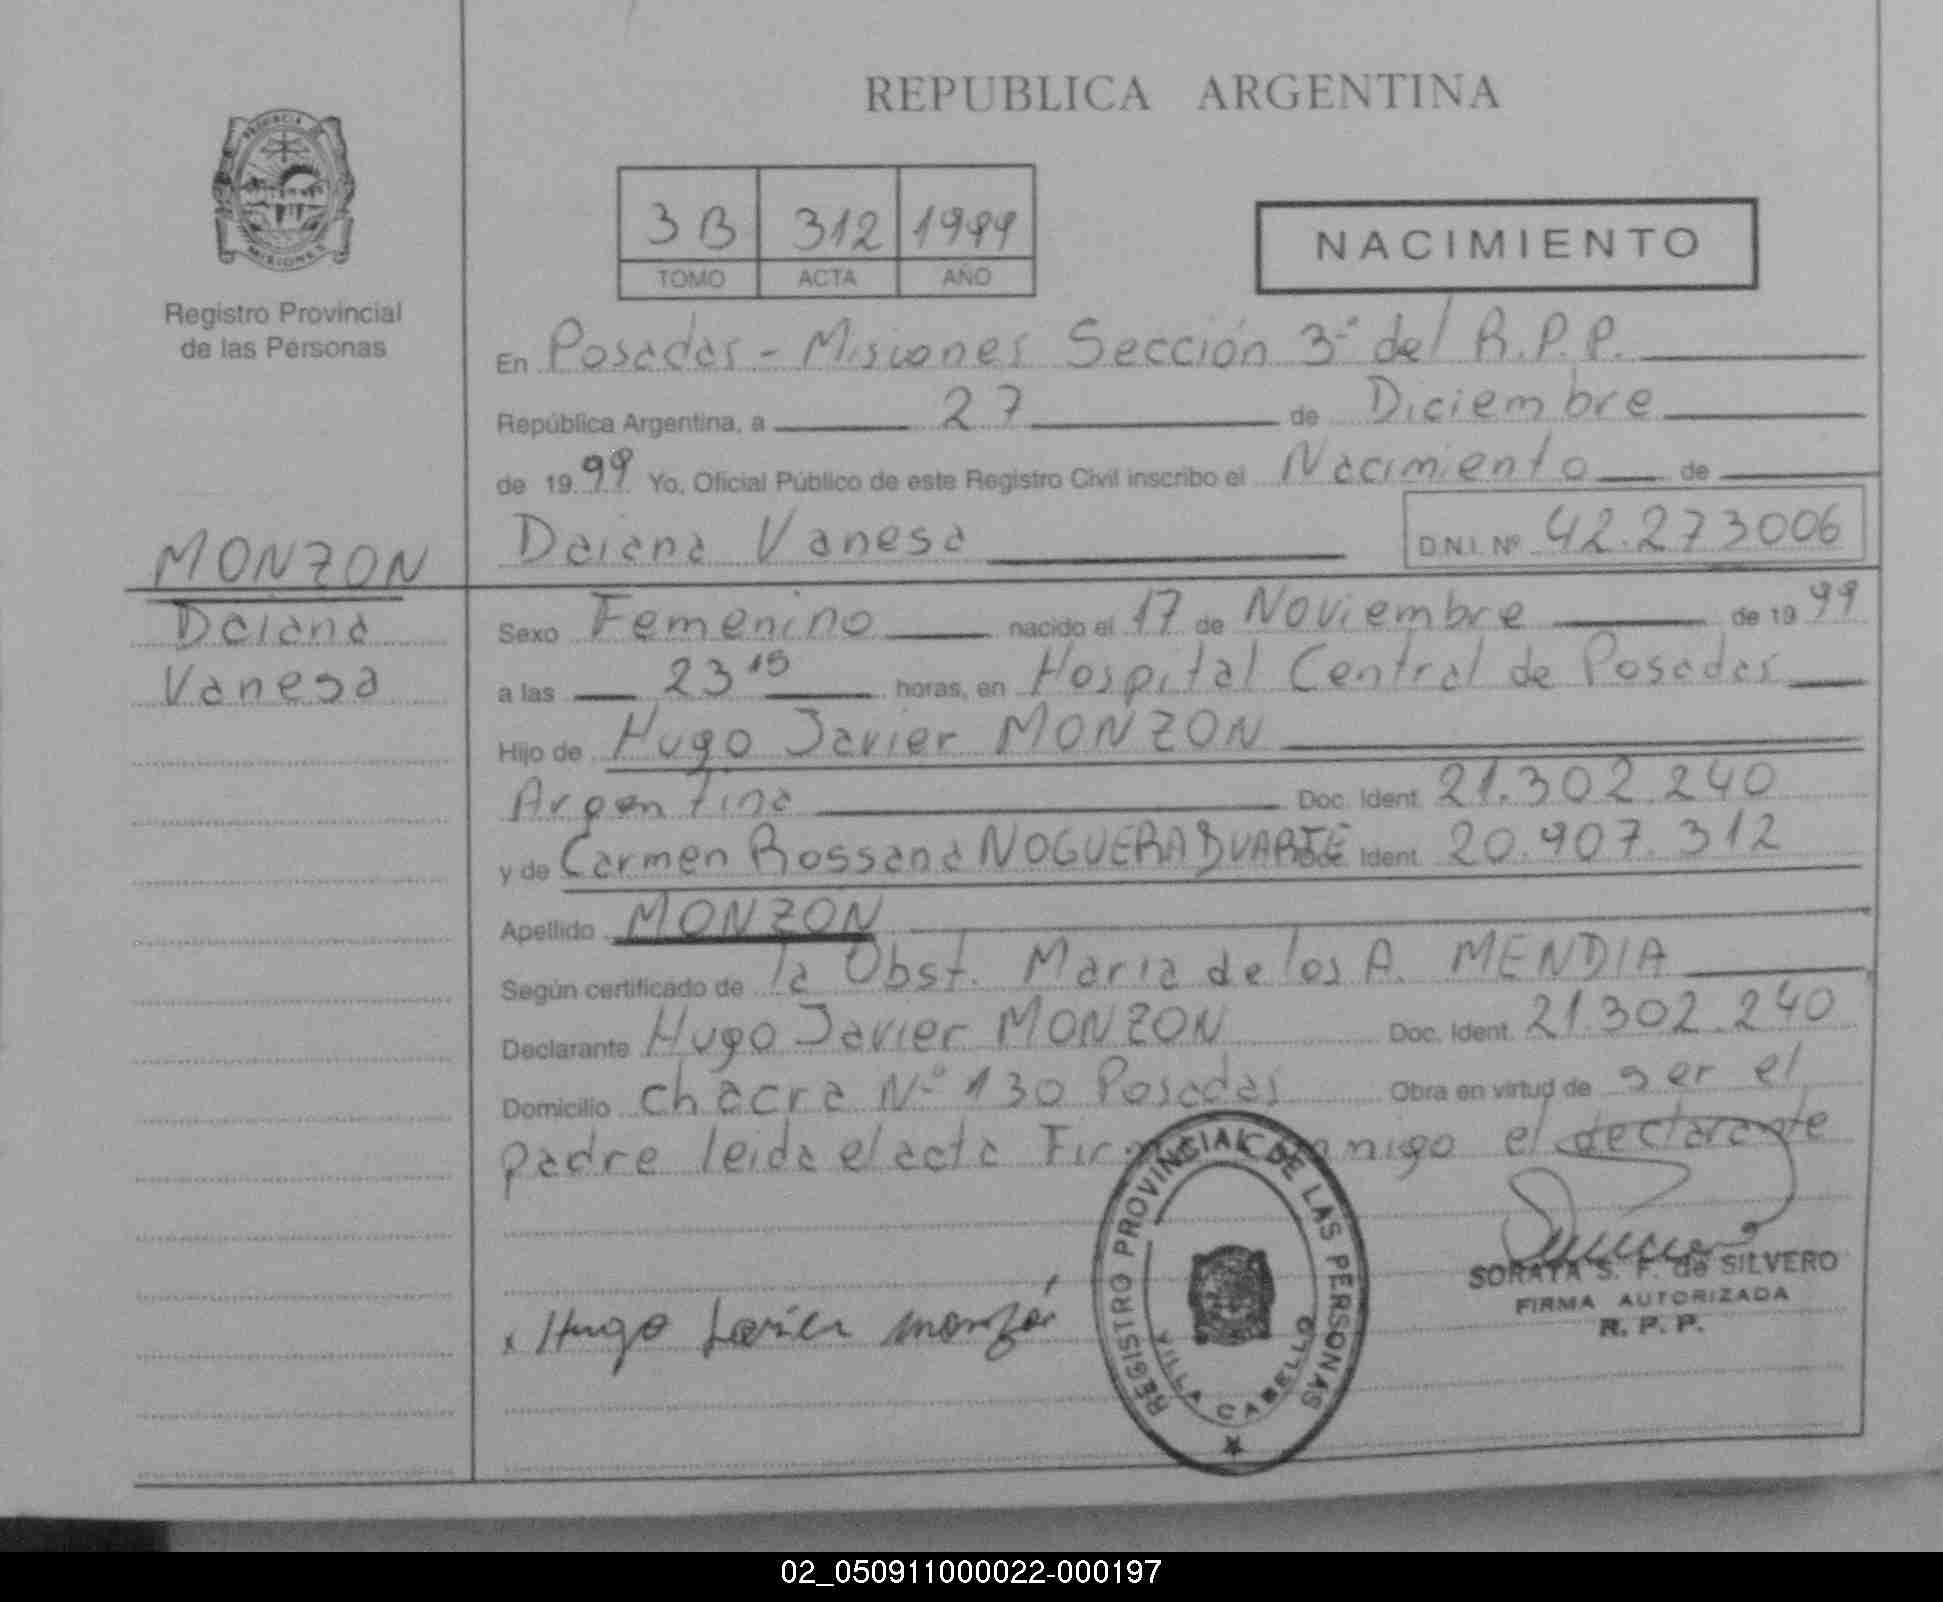 REPUBLICA ARGENTINA
PROVINCIA
MISIONES
Registro Provincial
de las Personas
3B 312 1999
TOMO ACTA AÑO
NACIMIENTO
En Posadas - Misiones Sección 3ª del R.P.P.
República Argentina, a 27 de Diciembre
de 19 99 Yo, Oficial Público de este Registro Civil inscribo el Nacimiento de
Daiana Vanesa D.N.I. Nº 42.273006
MONZON
Daiana
Vanesa
Sexo Femenino nacido el 17 de Noviembre de 19 99
a las 23 15 horas, en Hospital Central de Posadas
Hijo de Hugo Javier MONZON
Argentina Doc. Ident. 21.302.240
y de Carmen Rossana NOGUERA DUARTE Doc. Ident. 20.907.312
Apellido MONZON
Según certificado de la Obst. Maria de los A. MENDIA
Declarante Hugo Javier MONZON Doc. Ident. 21.302.240
Domicilio chacra Nº 130 Posadas Obra en virtud de ser el
padre leida el acta Firma conmigo el declarante
x Hugo Javier monzón
REGISTRO PROVINCIAL DE LAS PERSONAS
VILLA CABELLO
SORAYA S. F. de SILVERO
FIRMA AUTORIZADA
R. P. P.
02_050911000022-000197